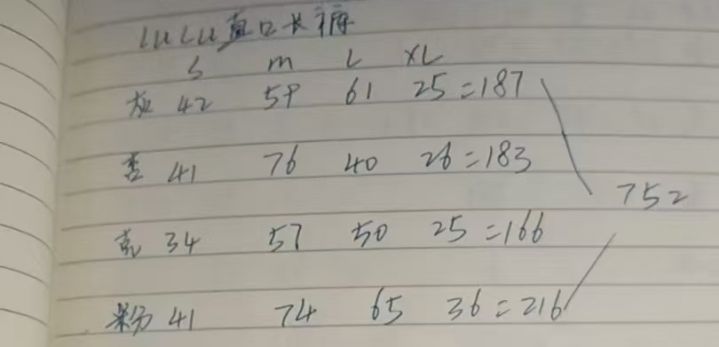 LULU直口长裤
S M L XL
灰 42 59 61 25=187
杏 41 76 40 26=183
34 57 50 25=166
粉 41 74 65 36=216
752